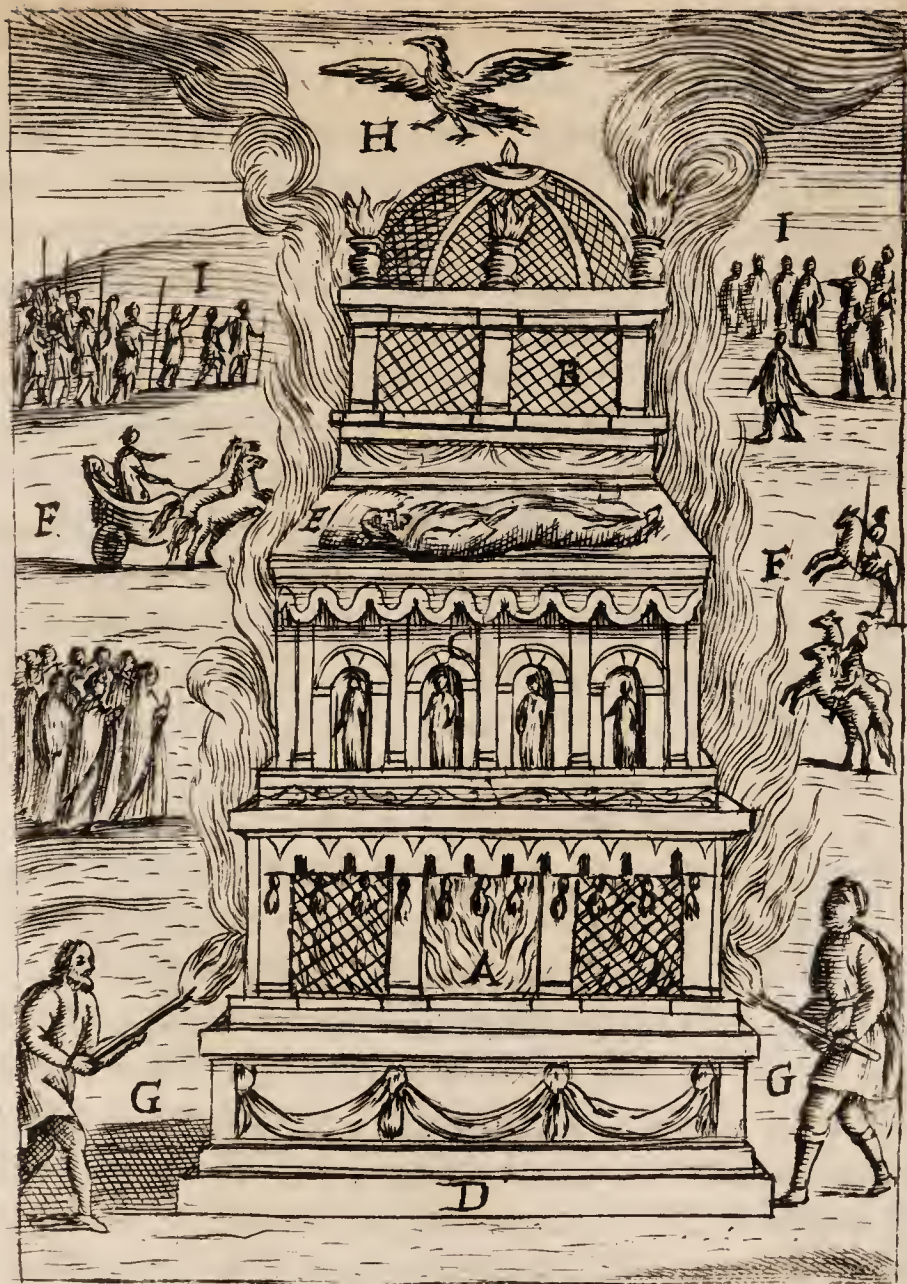 H
I
I
B
F
E
F
C
A
G
G
D